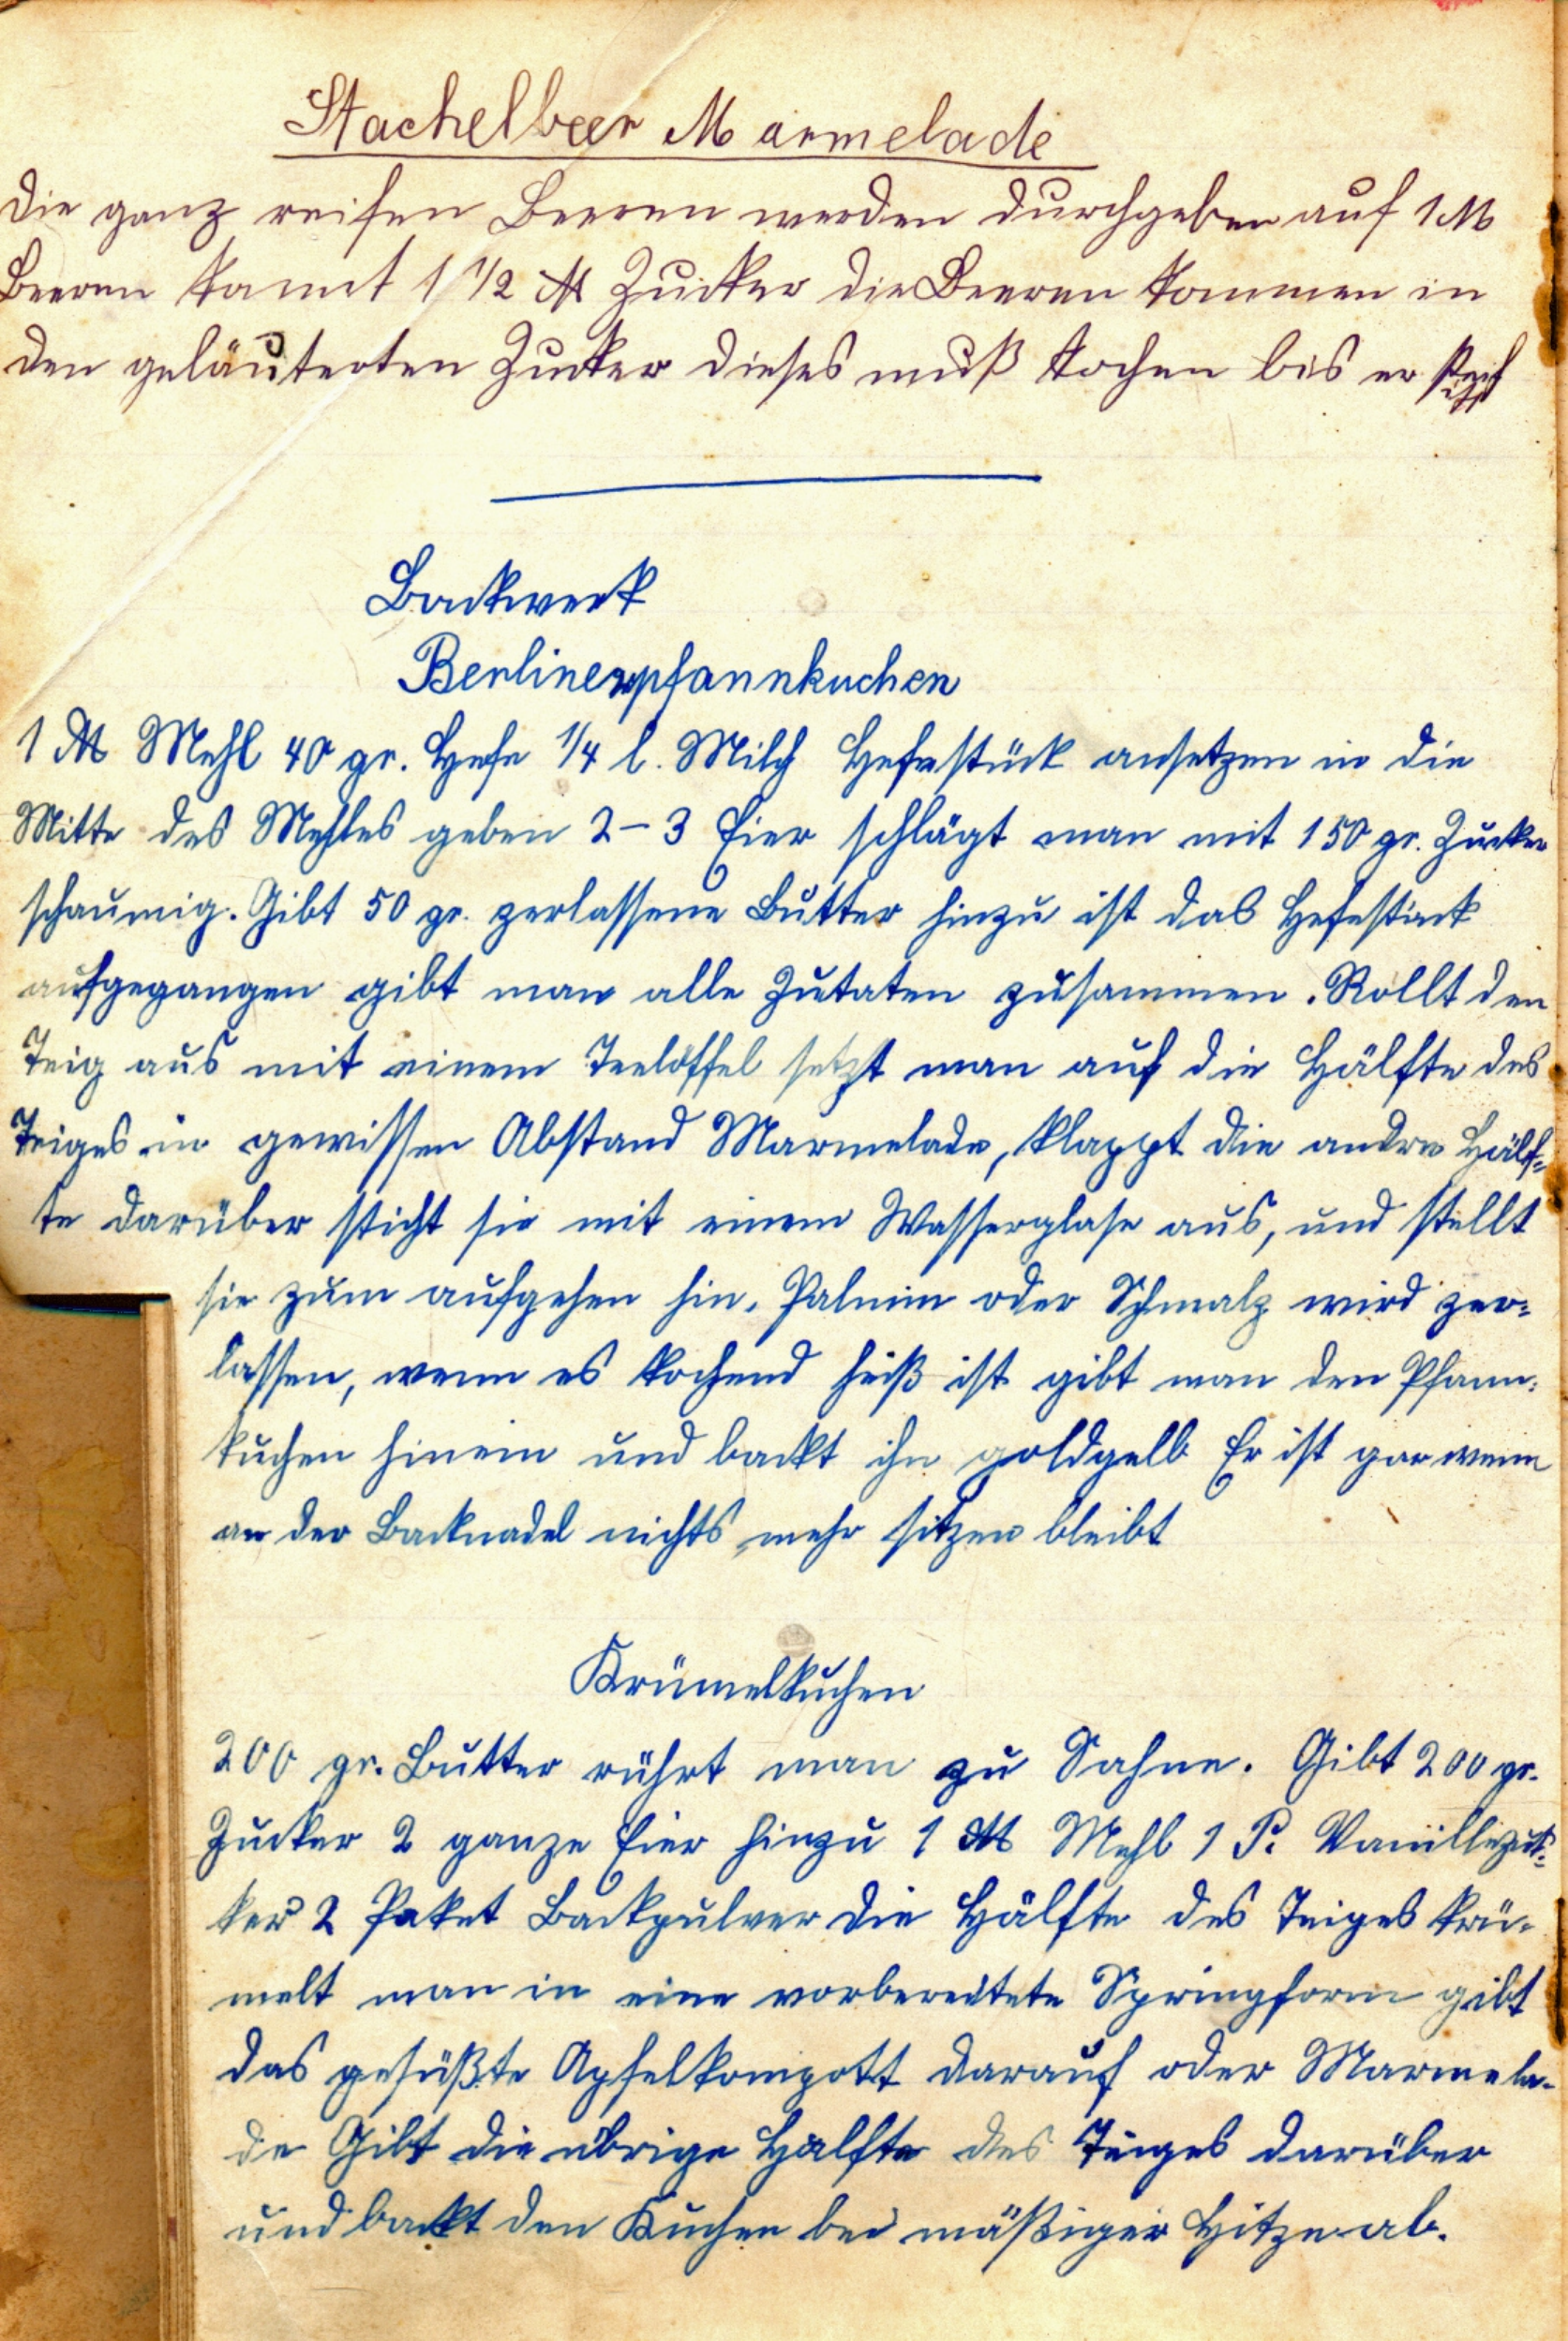 Stachelbeer Marmelade
Die ganz reifen Beeren werden durchgeben auf 1 ℔
Beeren kommt 1 1/2 ℔ Zucker die Beeren kommen in
den geläuterten Zucker dieses muß kochen bis er steif
ist
Backwerk
Berlinerpfannkuchen
1 ℔ Mehl 40 gr. Hefe 1/4 l. Milch Hefestück ansetzen in die
Mitte des Mehles geben 2–3 Eier schlägt man mit 150 gr. Zucker
schaumig. Gibt 50 gr. zerlassene Butter hinzu ist das Hefestück
aufgegangen gibt man alle Zutaten zusammen. Rollt den
Teig aus mit einem Teelöffel setzt man auf die Hälfte des
Teiges in gewissen Abstand Marmelade, klappt die andre Hälf=
te darüber sticht sie mit einem Wasserglase aus, und stellt
sie zum aufgehen hin. Palmin oder Schmalz wird zer=
lassen, wenn es kochend heiß ist gibt man den Pfann=
kuchen hinein und backt ihn goldgelb Er ist gar wenn
an der Backnadel nichts mehr sitzen bleibt
Krümelkuchen
200 gr. Butter rührt man zu Sahne. Gibt 200 gr.
Zucker 2 ganze Eier hinzu 1 ℔ Mehl 1 P. Vanillezuk=
ker 2 Paket Backpulver die Hälfte des Teiges krü=
melt man in eine vorbereitete Springform gibt
das gesüßte Apfelkompott darauf oder Marmela-
de Gibt die übrige Hälfte des Teiges darüber
und backt den Kuchen bei mäßiger Hitze ab.